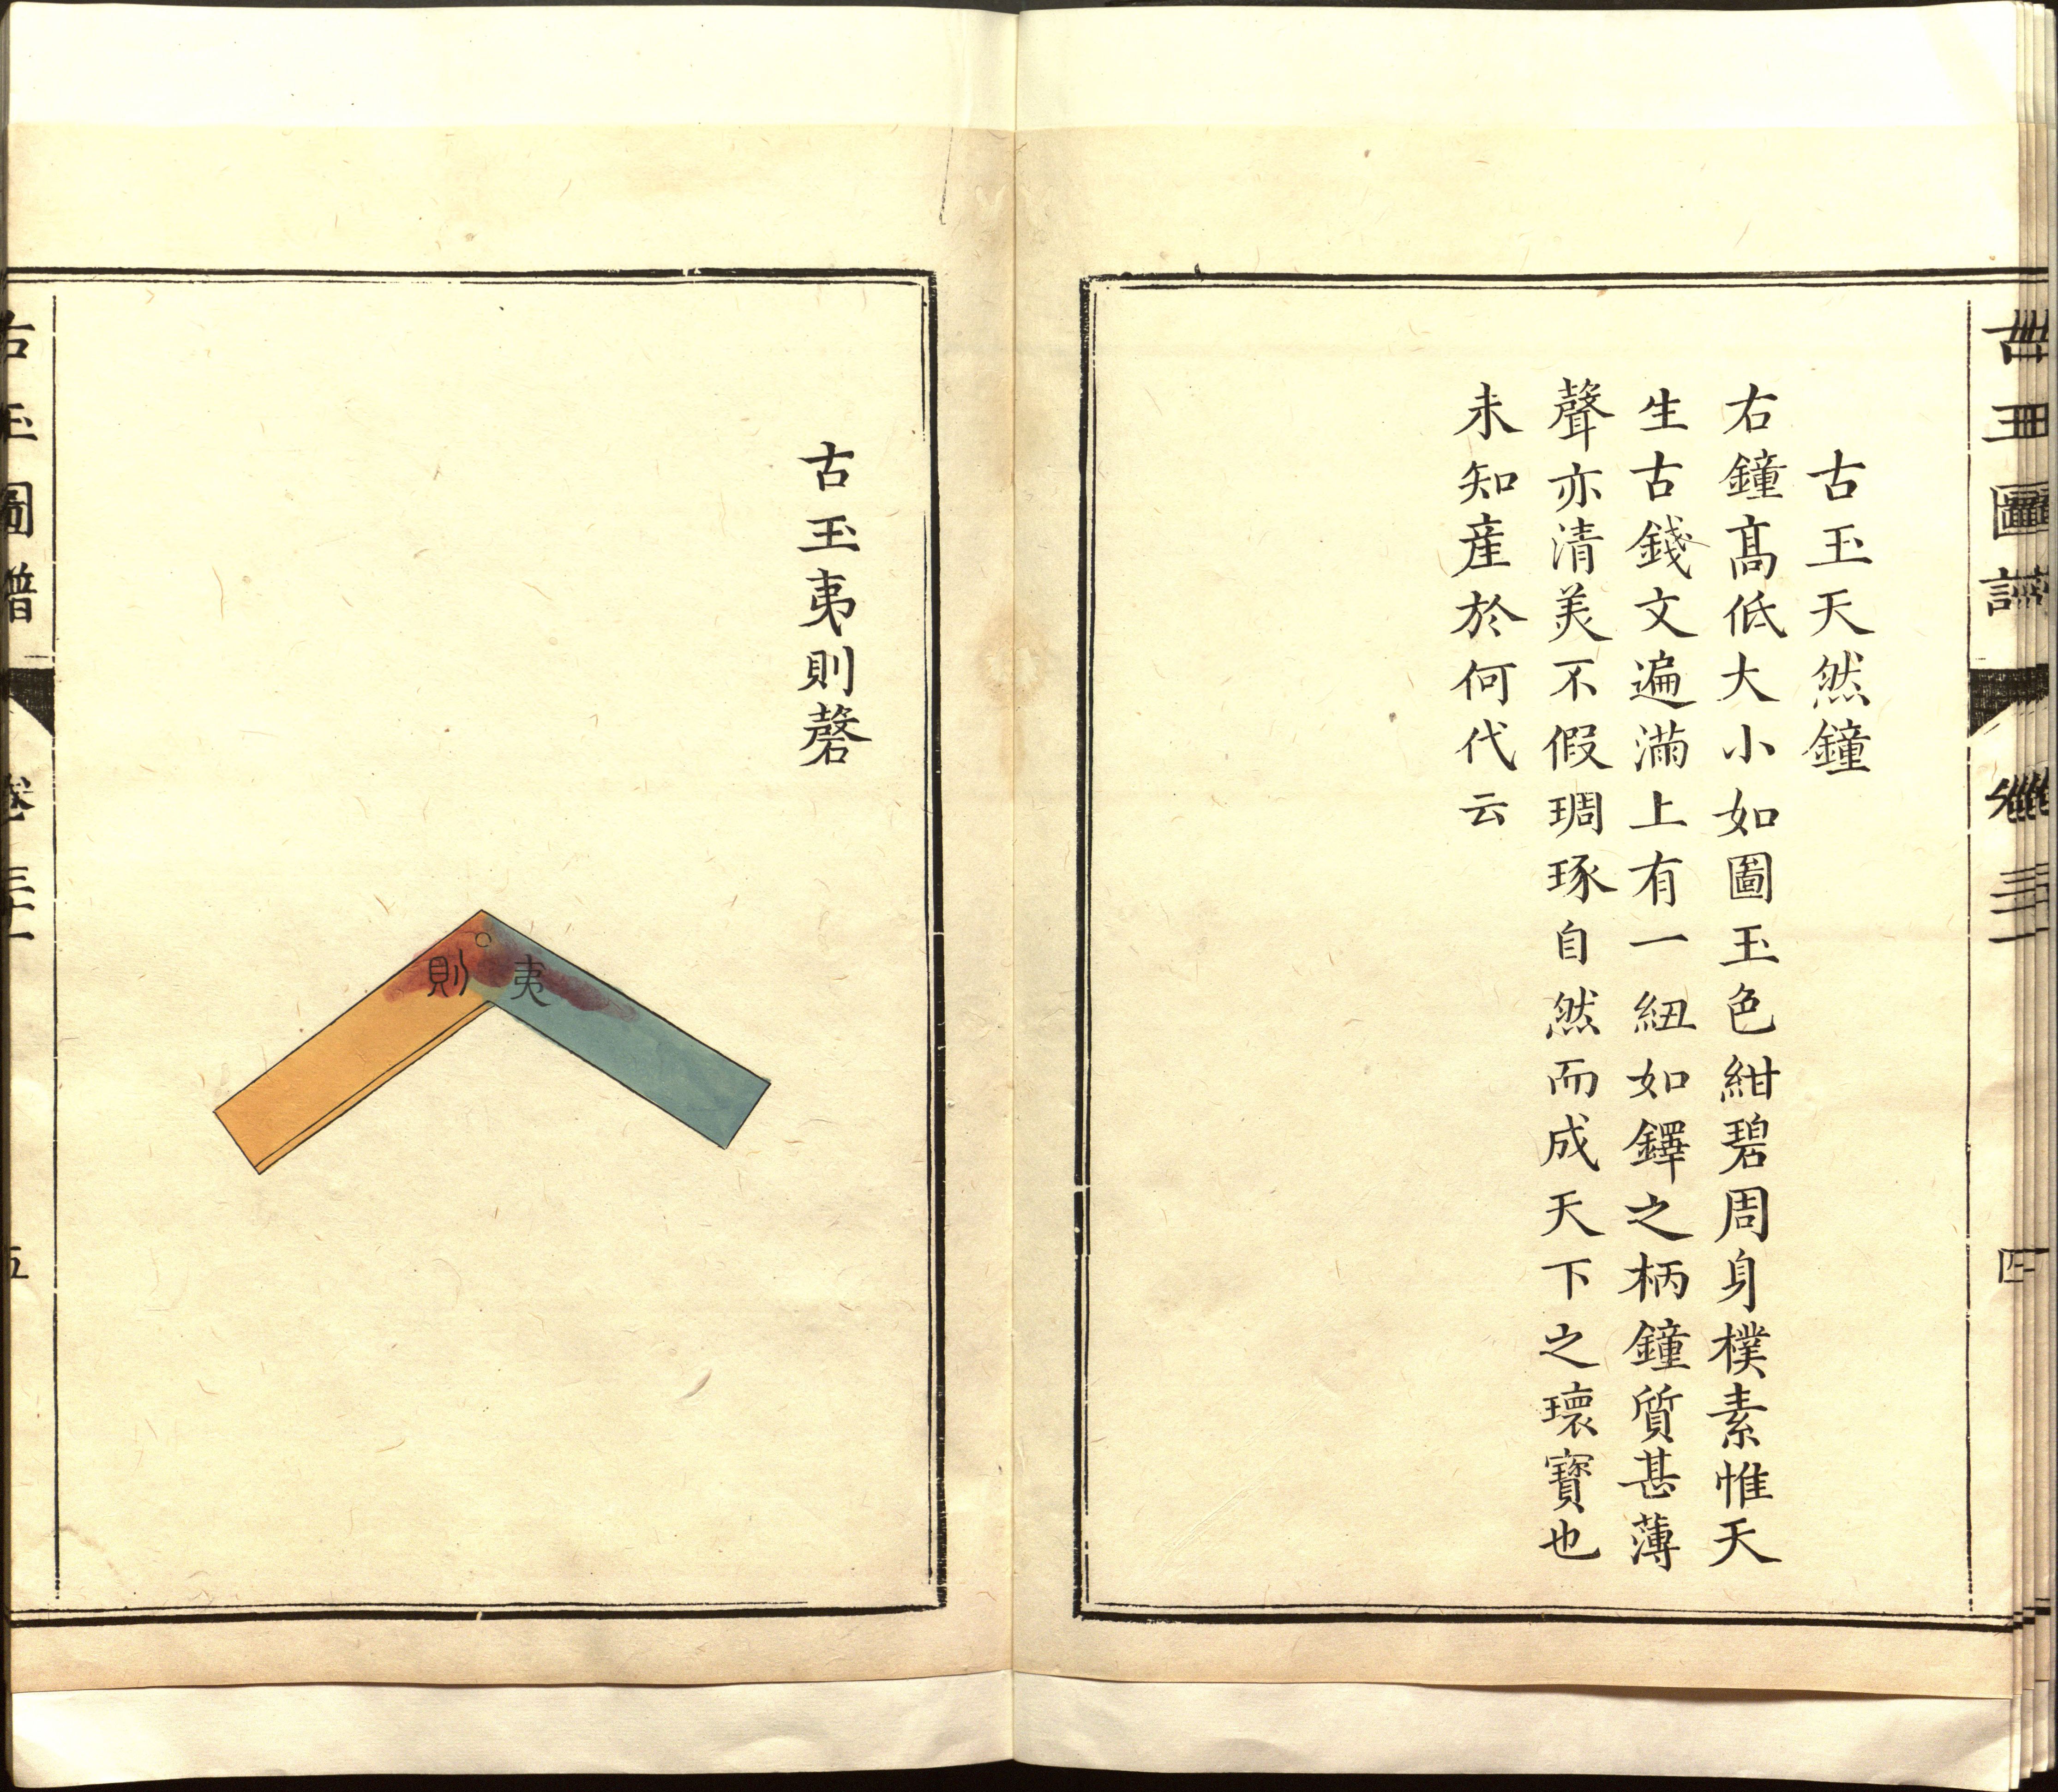 古玉天然鐘
右鐘髙低大小如圖玉色紺碧周身樸素惟天
生古錢文遍滿上有一紐如鐸之柄鐘質甚薄
聲亦清美不假琱琢自然而成天下之瓌寶也
未知産於何代云
古玉夷則磬
夷則
古玉圖譜
卷三十一
五